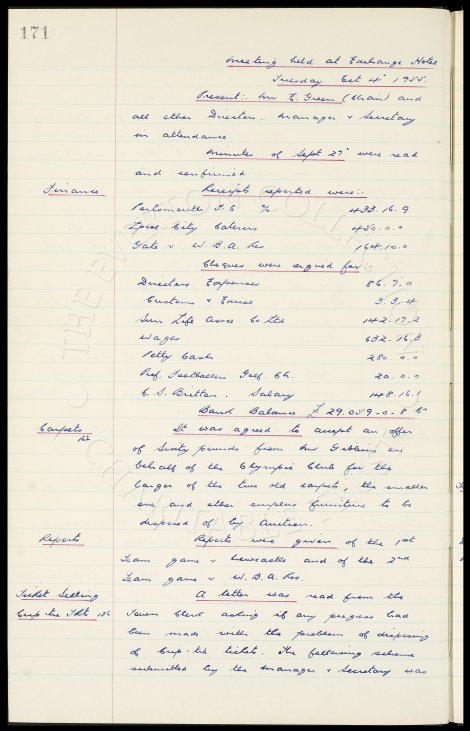 171
Meeting held at Exchange Hotel
Tuesday Oct 4th 1955.
Present:- Mr E. Green (Chair) and
all other Directors. Manager & Secretary
in attendance
Minutes of Sept 27th were read
and confirmed
Finance Receipts reported were:-
Portsmouth F.C. % 433.16.9
Lpool City Caterers 450.0.0
Gate v W.B.A. Res 164.10.0
Cheques were signed for:-
Directors Expenses 86.7.0
Customs & Excise 3.3.4
Sun Life Assce Co Ltd 142.17.2
Wages 632.16.3
Petty Cash 280.0.0
Prof. Footballers Golf. Ch. 20.0.0
C. S. Britton. Salary 148.16.1
Bank Balance £ 29.059-0-8
Carpets It was agreed to accept an offer
162 of Sixty pounds from Mr Gibbins on
behalf of the Olympic Club for the
larger of the two old carpets, the smaller
one and other surplus furniture to be
disposed of by Auction.
Reports Reports were given of the 1st
Team game v Newcastle and of the 2nd
Team game v W.B.A. Res.
Ticket Selling A letter was read from the
Cup-tie Tkts 156 Town Clerk asking if any progress had
been made with the problem of disposing
of Cup-tie tickets. The following scheme
submitted by the Manager & Secretary was
© THE EVERTON COLLECTION
CHARITABLE TRUST